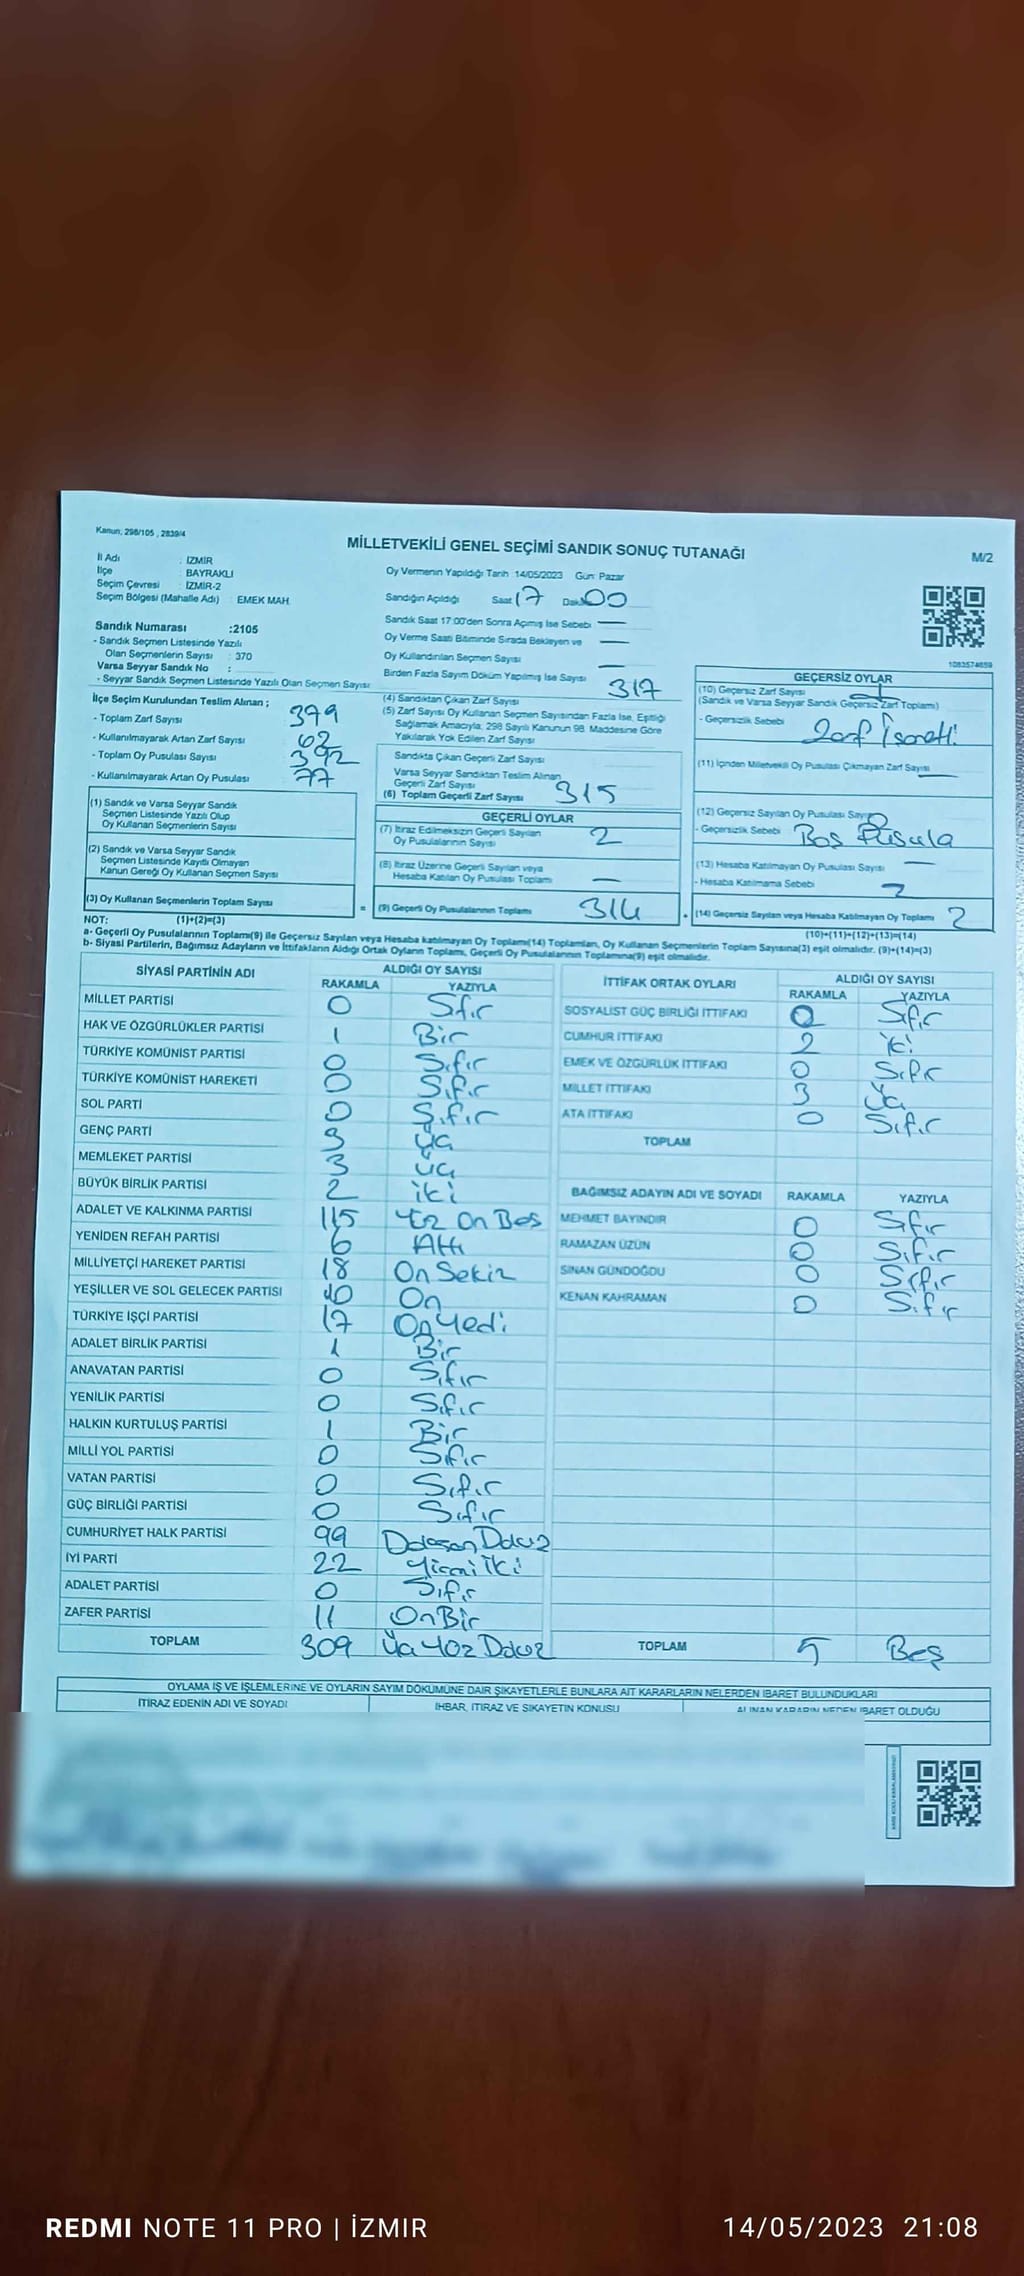 Kanun, 298/105 , 2839/4
MİLLETVEKİLİ GENEL SEÇİMİ SANDIK SONUÇ TUTANAĞI
M/2
İl Adı : İZMİR
İlçe BAYRAKLI
Seçim Çevresi : İZMİR-2
Seçim Bölgesi (Mahalle Adı) : EMEK MAH.
Oy Vermenin Yapıldığı Tarih :14/05/2023 Gün: Pazar
Sandığın Açıldığı Saat 17 Dak 00
Sandık Saat 17:00'den Sonra Açılmış İse Sebebi —
Oy Verme Saati Bitiminde Sırada Bekleyen ve —
Oy Kullandırılan Seçmen Sayısı
Birden Fazla Sayım Döküm Yapılmış İse Sayısı —
1083574659
Sandık Numarası :2105
- Sandık Seçmen Listesinde Yazılı
Olan Seçmenlerin Sayısı : 370
Varsa Seyyar Sandık No :
- Seyyar Sandık Seçmen Listesinde Yazılı Olan Seçmen Sayısı
İlçe Seçim Kurulundan Teslim Alınan ;
- Toplam Zarf Sayısı 379
- Kullanılmayarak Artan Zarf Sayısı 62
- Toplam Oy Pusulası Sayısı 392
- Kullanılmayarak Artan Oy Pusulası 77
(1) Sandık ve Varsa Seyyar Sandık
Seçmen Listesinde Yazılı Olup
Oy Kullanan Seçmenlerin Sayısı
(2) Sandık ve Varsa Seyyar Sandık
Seçmen Listesinde Kayıtlı Olmayan
Kanun Gereği Oy Kullanan Seçmen Sayısı
(3) Oy Kullanan Seçmenlerin Toplam Sayısı
(1)+(2)=(3)
(4) Sandıktan Çıkan Zarf Sayısı 317
(5) Zarf Sayısı Oy Kullanan Seçmen Sayısından Fazla İse, Eşitliği
Sağlamak Amacıyla, 298 Sayılı Kanunun 98. Maddesine Göre
Yakılarak Yok Edilen Zarf Sayısı
Sandıkta Çıkan Geçerli Zarf Sayısı
Varsa Seyyar Sandıktan Teslim Alınan
Geçerli Zarf Sayısı
(6) Toplam Geçerli Zarf Sayısı 315
GEÇERLİ OYLAR
(7) İtiraz Edilmeksizin Geçerli Sayılan
Oy Pusulalarının Sayısı 2
(8) İtiraz Üzerine Geçerli Sayılan veya
Hesaba Katılan Oy Pusulası Toplamı —
= (9) Geçerli Oy Pusulalarının Toplamı 314
GEÇERSİZ OYLAR
(10) Geçersiz Zarf Sayısı
(Sandık ve Varsa Seyyar Sandık Geçersiz Zarf Toplamı)
- Geçersizlik Sebebi Zarf İşareti
(11) İçinden Milletvekili Oy Pusulası Çıkmayan Zarf Sayısı —
(12) Geçersiz Sayılan Oy Pusulası Sayısı
- Geçersizlik Sebebi Boş Pusula
(13) Hesaba Katılmayan Oy Pusulası Sayısı —
- Hesaba Katılmama Sebebi
(14) Geçersiz Sayılan veya Hesaba Katılmayan Oy Toplamı 2
(10)+(11)+(12)+(13)=(14)
NOT:
a- Geçerli Oy Pusulalarının Toplamı(9) ile Geçersiz Sayılan veya Hesaba katılmayan Oy Toplamı(14) Toplamları, Oy Kullanan Seçmenlerin Toplam Sayısına(3) eşit olmalıdır. (9)+(14)=(3)
b- Siyasi Partilerin, Bağımsız Adayların ve İttifakların Aldığı Ortak Oyların Toplamı, Geçerli Oy Pusulalarının Toplamına(9) eşit olmalıdır.
SİYASİ PARTİNİN ADI ALDIĞI OY SAYISI
RAKAMLA YAZIYLA
MİLLET PARTİSİ 0 Sıfır
HAK VE ÖZGÜRLÜKLER PARTİSİ 1 Bir
TÜRKİYE KOMÜNİST PARTİSİ 0 Sıfır
TÜRKİYE KOMÜNİST HAREKETİ 0 Sıfır
SOL PARTİ 0 Sıfır
GENÇ PARTİ 3 Üç
MEMLEKET PARTİSİ 3 Üç
BÜYÜK BİRLİK PARTİSİ 2 iki
ADALET VE KALKINMA PARTİSİ 115 Yüz On Beş
YENİDEN REFAH PARTİSİ 6 Altı
MİLLİYETÇİ HAREKET PARTİSİ 18 On Sekiz
YEŞİLLER VE SOL GELECEK PARTİSİ 10 On
TÜRKİYE İŞÇİ PARTİSİ 17 On Yedi
ADALET BİRLİK PARTİSİ 1 Bir
ANAVATAN PARTİSİ 0 Sıfır
YENİLİK PARTİSİ 0 Sıfır
HALKIN KURTULUŞ PARTİSİ 1 Bir
MİLLİ YOL PARTİSİ 0 Sıfır
VATAN PARTİSİ 0 Sıfır
GÜÇ BİRLİĞİ PARTİSİ 0 Sıfır
CUMHURİYET HALK PARTİSİ 99 Doksan Dokuz
İYİ PARTİ 22 Yirmi İki
ADALET PARTİSİ 0 Sıfır
ZAFER PARTİSİ 11 On Bir
TOPLAM 309 Üç Yüz Dokuz
İTTİFAK ORTAK OYLARI ALDIĞI OY SAYISI
RAKAMLA YAZIYLA
SOSYALİST GÜÇ BİRLİĞİ İTTİFAKI 0 Sıfır
CUMHUR İTTİFAKI 2 iki
EMEK VE ÖZGÜRLÜK İTTİFAKI 0 Sıfır
MİLLET İTTİFAKI 3 Üç
ATA İTTİFAKI 0 Sıfır
TOPLAM
BAĞIMSIZ ADAYIN ADI VE SOYADI RAKAMLA YAZIYLA
MEHMET BAYINDIR 0 Sıfır
RAMAZAN ÜZÜN 0 Sıfır
SİNAN GÜNDOĞDU 0 Sıfır
KENAN KAHRAMAN 0 Sıfır
TOPLAM 5 Beş
OYLAMA İŞ VE İŞLEMLERİNE VE OYLARIN SAYIM DÖKÜMÜNE DAİR ŞİKAYETLERLE BUNLARA AİT KARARLARIN NELERDEN İBARET BULUNDUKLARI
İTİRAZ EDENİN ADI VE SOYADI İHBAR, İTİRAZ VE ŞİKAYETİN KONUSU ALINAN KARARIN NEDEN İBARET OLDUĞU
REDMI NOTE 11 PRO | İZMİR
14/05/2023 21:08